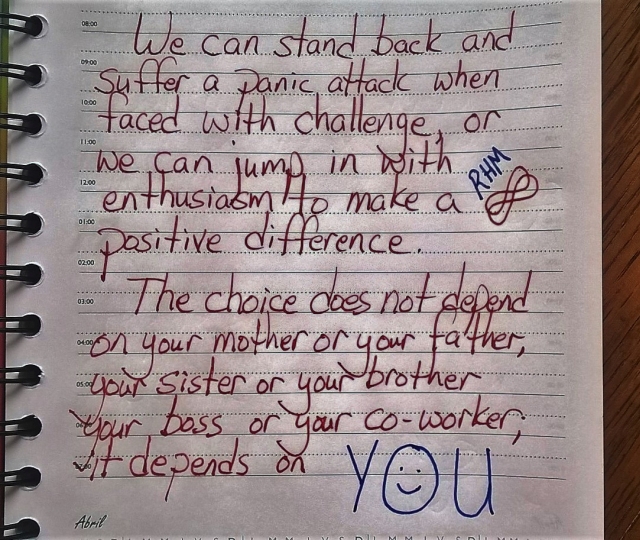 08:00
We can stand back and
09:00
suffer a panic attack when
10:00
faced with challenge, or
11:00
we can jump in with
RHM
12:00
enthusiasm to make a
01:00
positive difference.
02:00
The choice does not depend
03:00
04:00
on your mother or your father,
05:00
your sister or your brother
your boss or your co-worker;
it depends on YOU
Abril